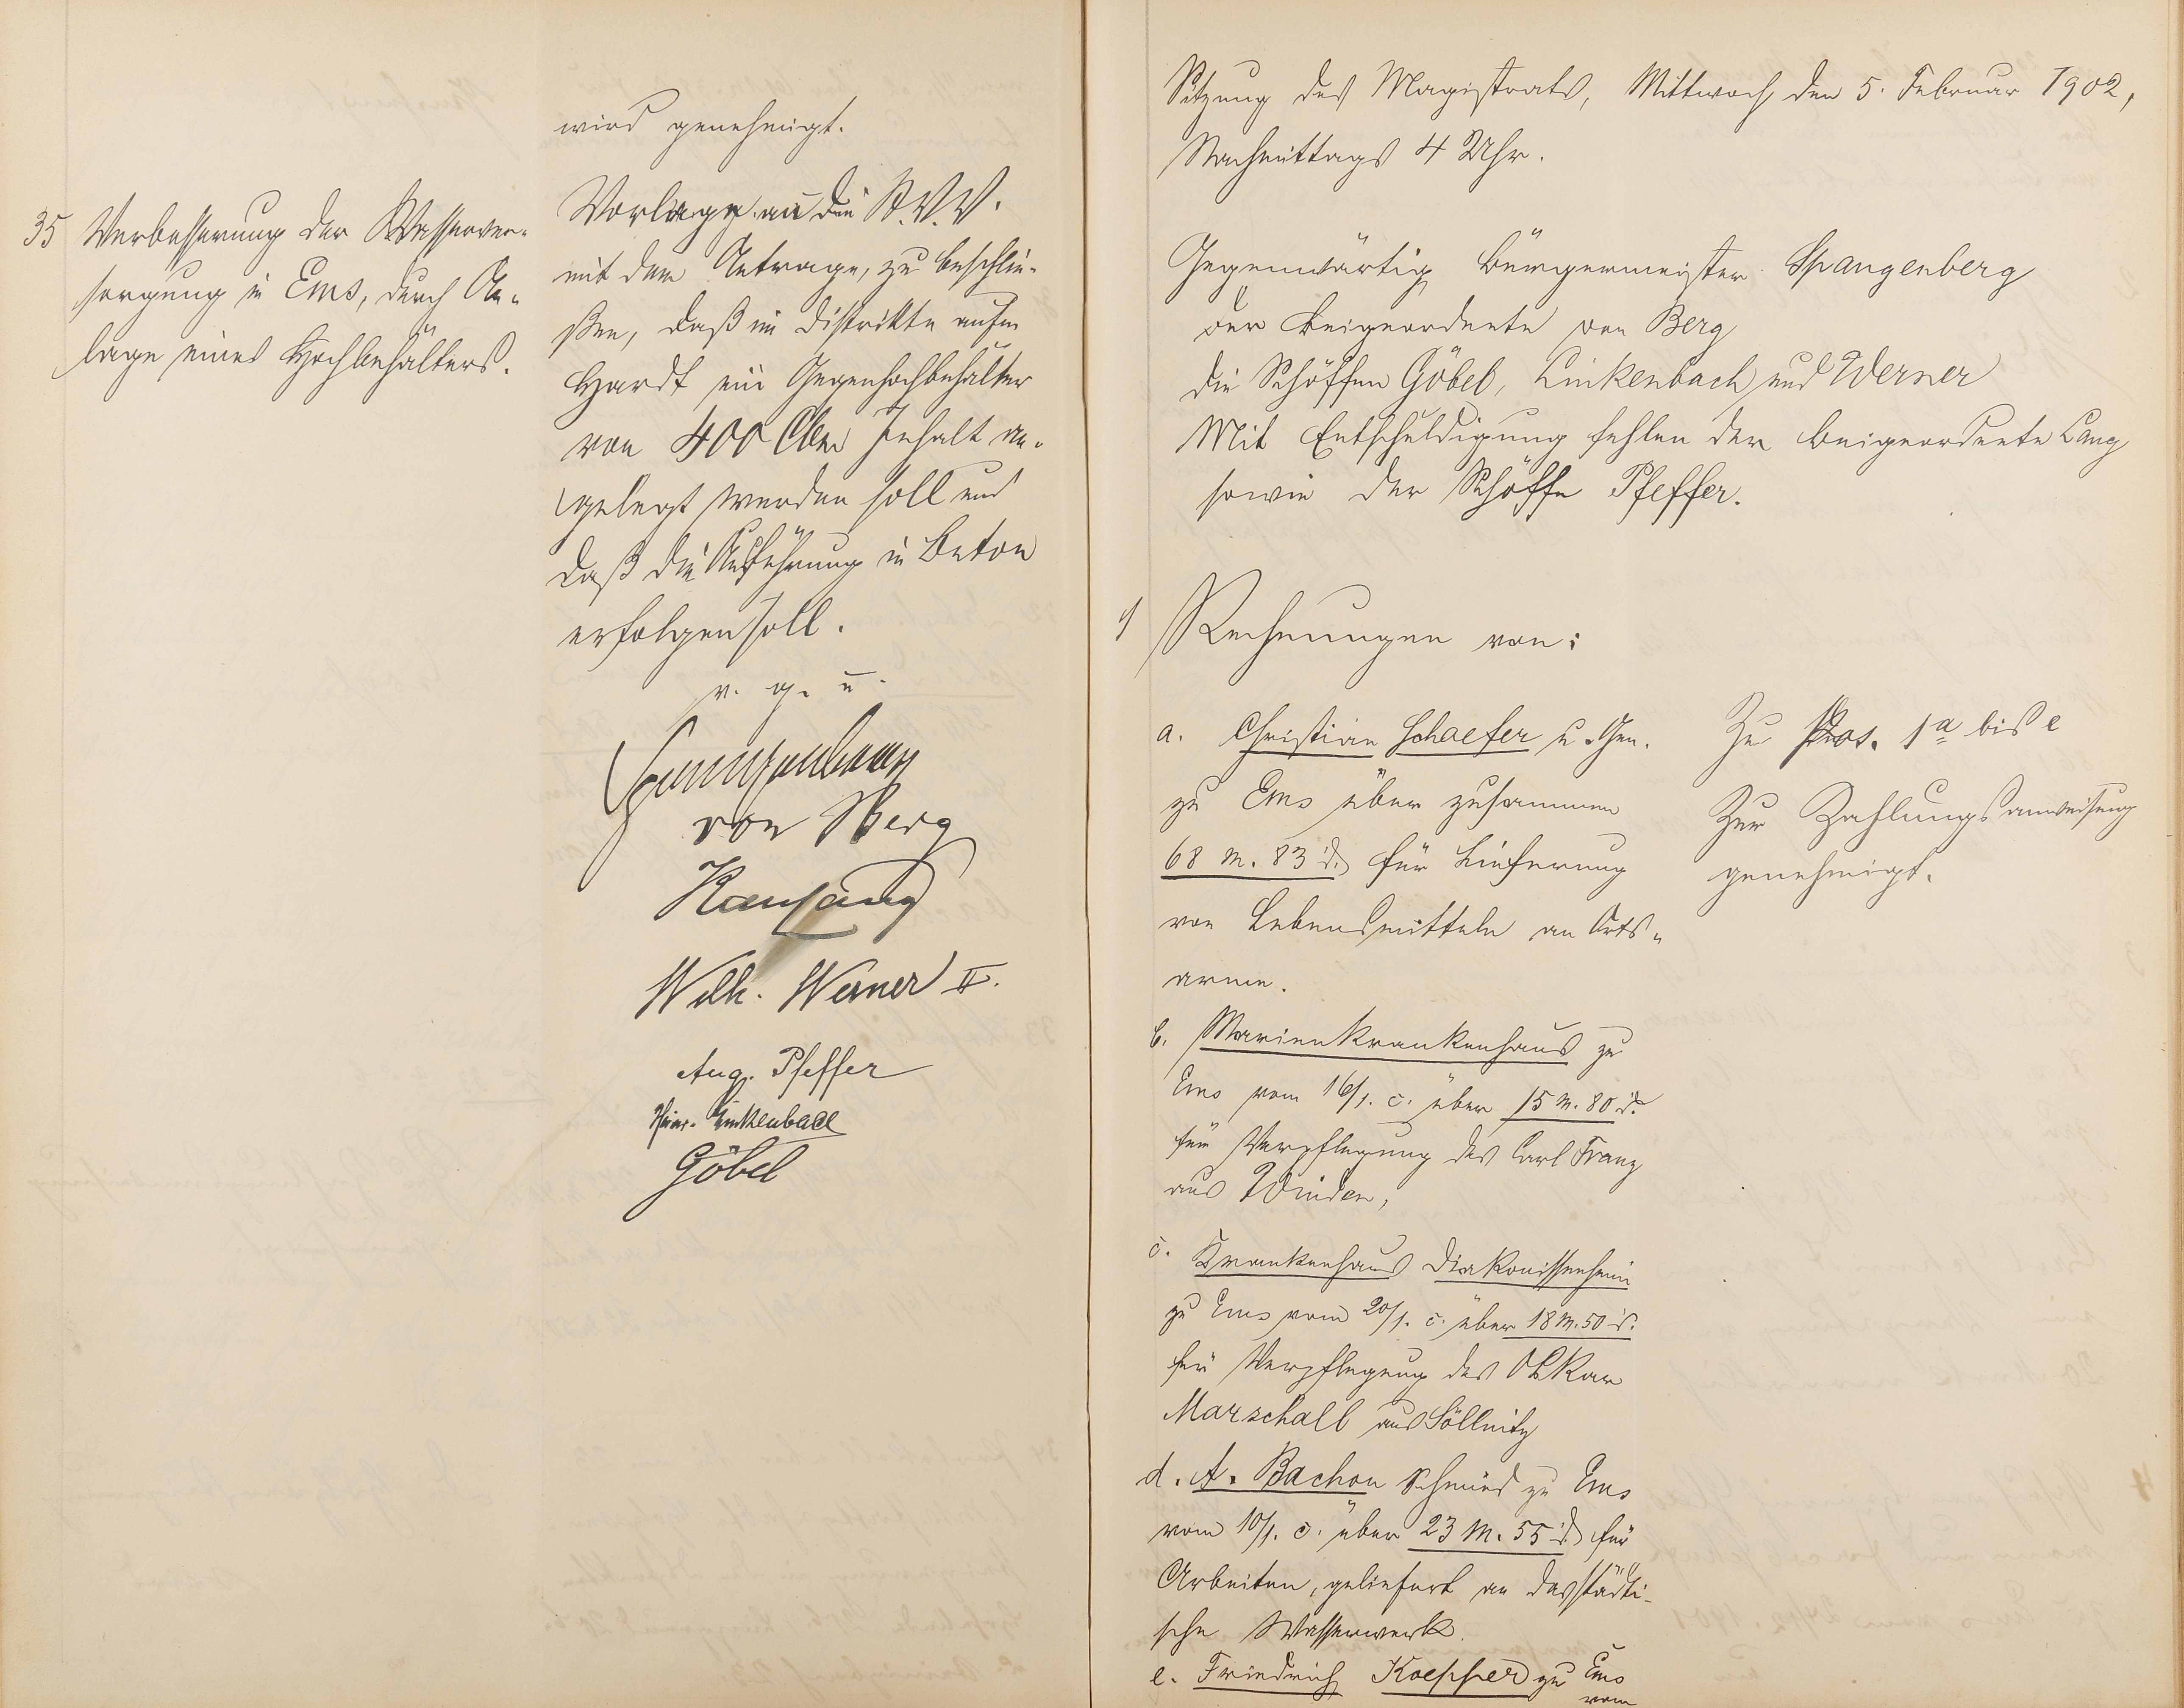 wird genehmigt.
35 Verbesserung der Wasserver-
sorgung in Ems, durch An-
lage eines Hochbehälters.
Vorlage an die St.V.V.
mit dem Antrage, zu beschlie-
ßen, daß im Distrikte aufm
Hardt ein Gegenhochbehälter
von 400 Cbm Inhalt an-
gelegt werden soll und
daß die Ausführung in Beton
erfolgen soll.
v. g. u.
Spangenberg
von Berg
Wilh. Werner II.
Aug. Pfeffer
Heinr. Linkenbach
Göbel
Sitzung des Magistrats, Mittwoch den 5. Februar 1902,
Nachmittags 4 Uhr.
Gegenwärtig Bürgermeister Spangenberg
der Beigeordnete von Berg
die Schöffen Göbel, Linkenbach und Werner
Mit Entschuldigung fehlen der Beigeordnete Lang
sowie der Schöffe Pfeffer.
1 Rechnungen von:
a. Christian Schaefer u. Gen.
zu Ems über zusammen
68 M. 83 d. für Lieferung
von Lebensmitteln an Orts-
arme.
b. Marienkrankenhaus zu
Ems vom 16/1. c. über 15 M. 80 d.
für Verpflegung des Carl Franz
aus Winden,
c. Krankenhaus Diakonissenheim
zu Ems vom 20/1. c. über 18 M. 50 d.
für Verpflegung des Oskar
Marschall aus Söllnitz
d. A. Bachon Schmied zu Ems
vom 10/1. c. über 23 M. 55 d. für
Arbeiten, geliefert an das städti-
sche Wasserwerk.
e. Friedrich Koepper zu Ems
vom
Zu Pos. 1a bis e
Zur Zahlungsanweisung
genehmigt.